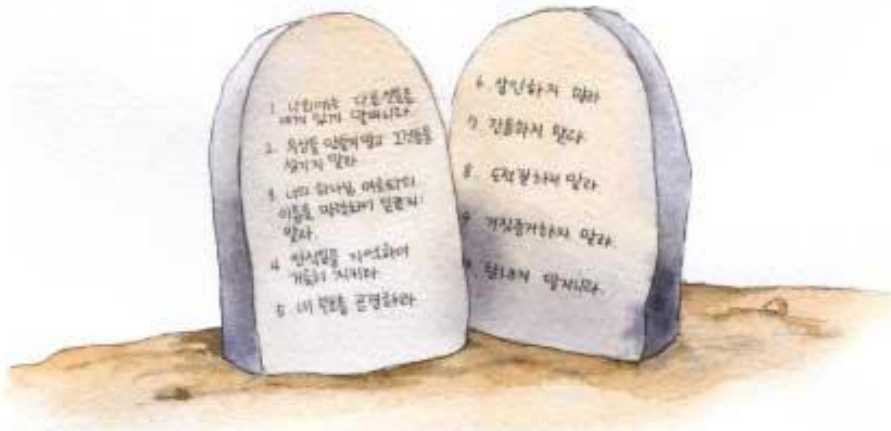 1. 나 외에는 다른 신들을
네게 있게 말찌니라.
2. 우상을 만들지 말고 그것들을
섬기지 말라
3. 너의 하나님 여호와의
이름을 망령되이 일컫지
말라.
4. 안식일을 기억하여
거룩히 지키라
5 네 부모를 공경하라
6. 살인하지 말라
7. 간음하지 말라.
8. 도적질하지 말라.
9 거짓증거하지 말라.
탐내지 말지니라.